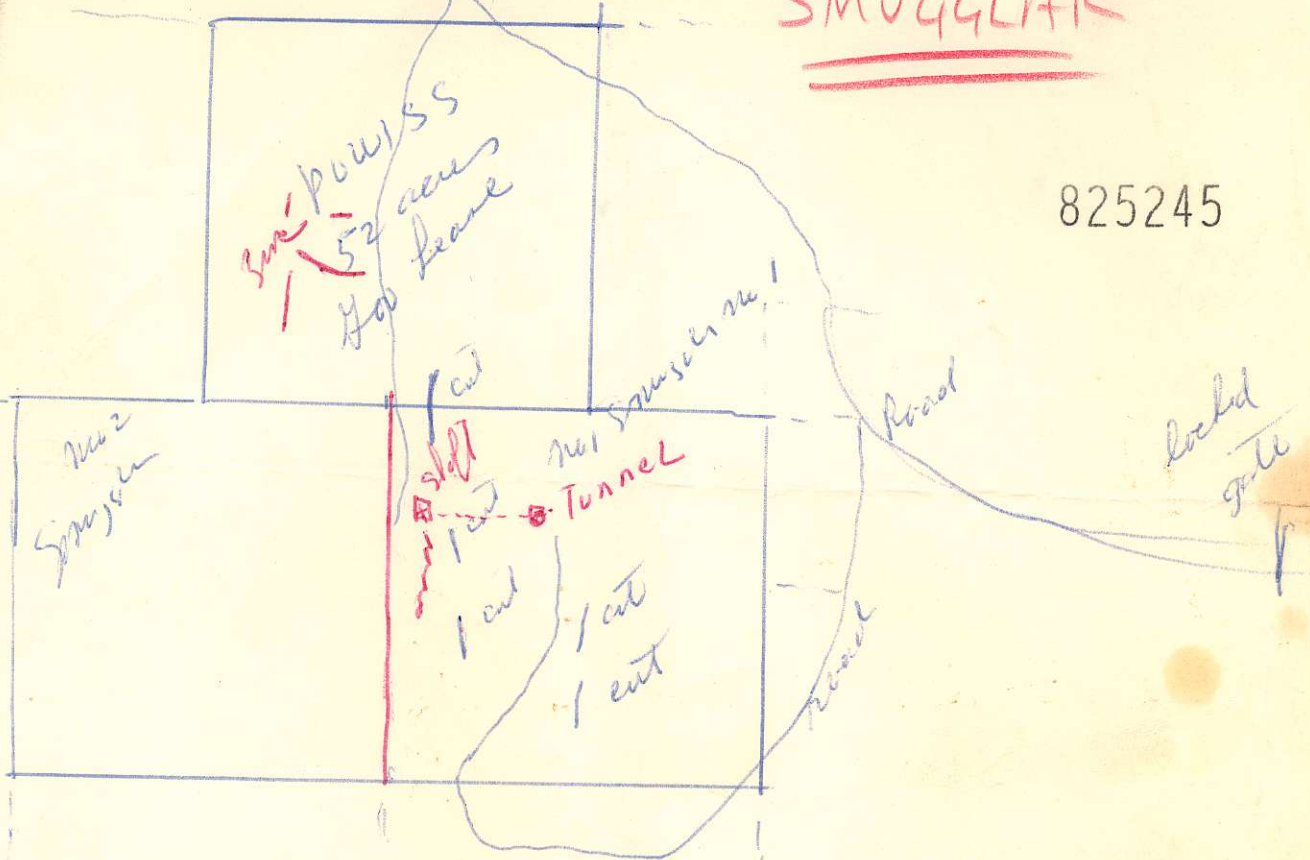 SMUGGLAR
825245
POWISS
52 acres
Gov Lease
1 cut
no 1 Smuggler no. 1
Road
locked
gate
no 2
Smuggler
shaft
Tunnel
1 cut
1 cut
1 cut
1 cut
road